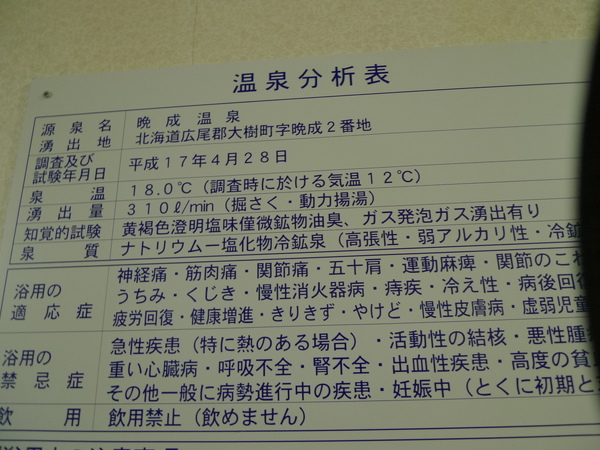 温泉分析表
源泉名 晩成温泉
湧出地 北海道広尾郡大樹町字晩成2番地
調査及び
試験年月日 平成17年4月28日
泉温 18.0℃(調査時に於ける気温12℃)
湧出量 310ℓ/min(掘さく・動力揚湯)
知覚的試験 黄褐色澄明塩味僅微鉱物油臭、ガス発泡ガス湧出有り
泉質 ナトリウムー塩化物冷鉱泉(高張性・弱アルカリ性・冷鉱
浴用の
適応症
神経痛・筋肉痛・関節痛・五十肩・運動麻痺・関節のこわ
うちみ・くじき・慢性消火器病・痔疾・冷え性・病後回復
疲労回復・健康増進・きりきず・やけど・慢性皮膚病・虚弱児童
浴用の
禁忌症
急性疾患(特に熱のある場合)・活動性の結核・悪性腫瘍
重い心臓病・呼吸不全・腎不全・出血性疾患・高度の貧
その他一般に病勢進行中の疾患・妊娠中(とくに初期と
飲用 飲用禁止(飲めません)